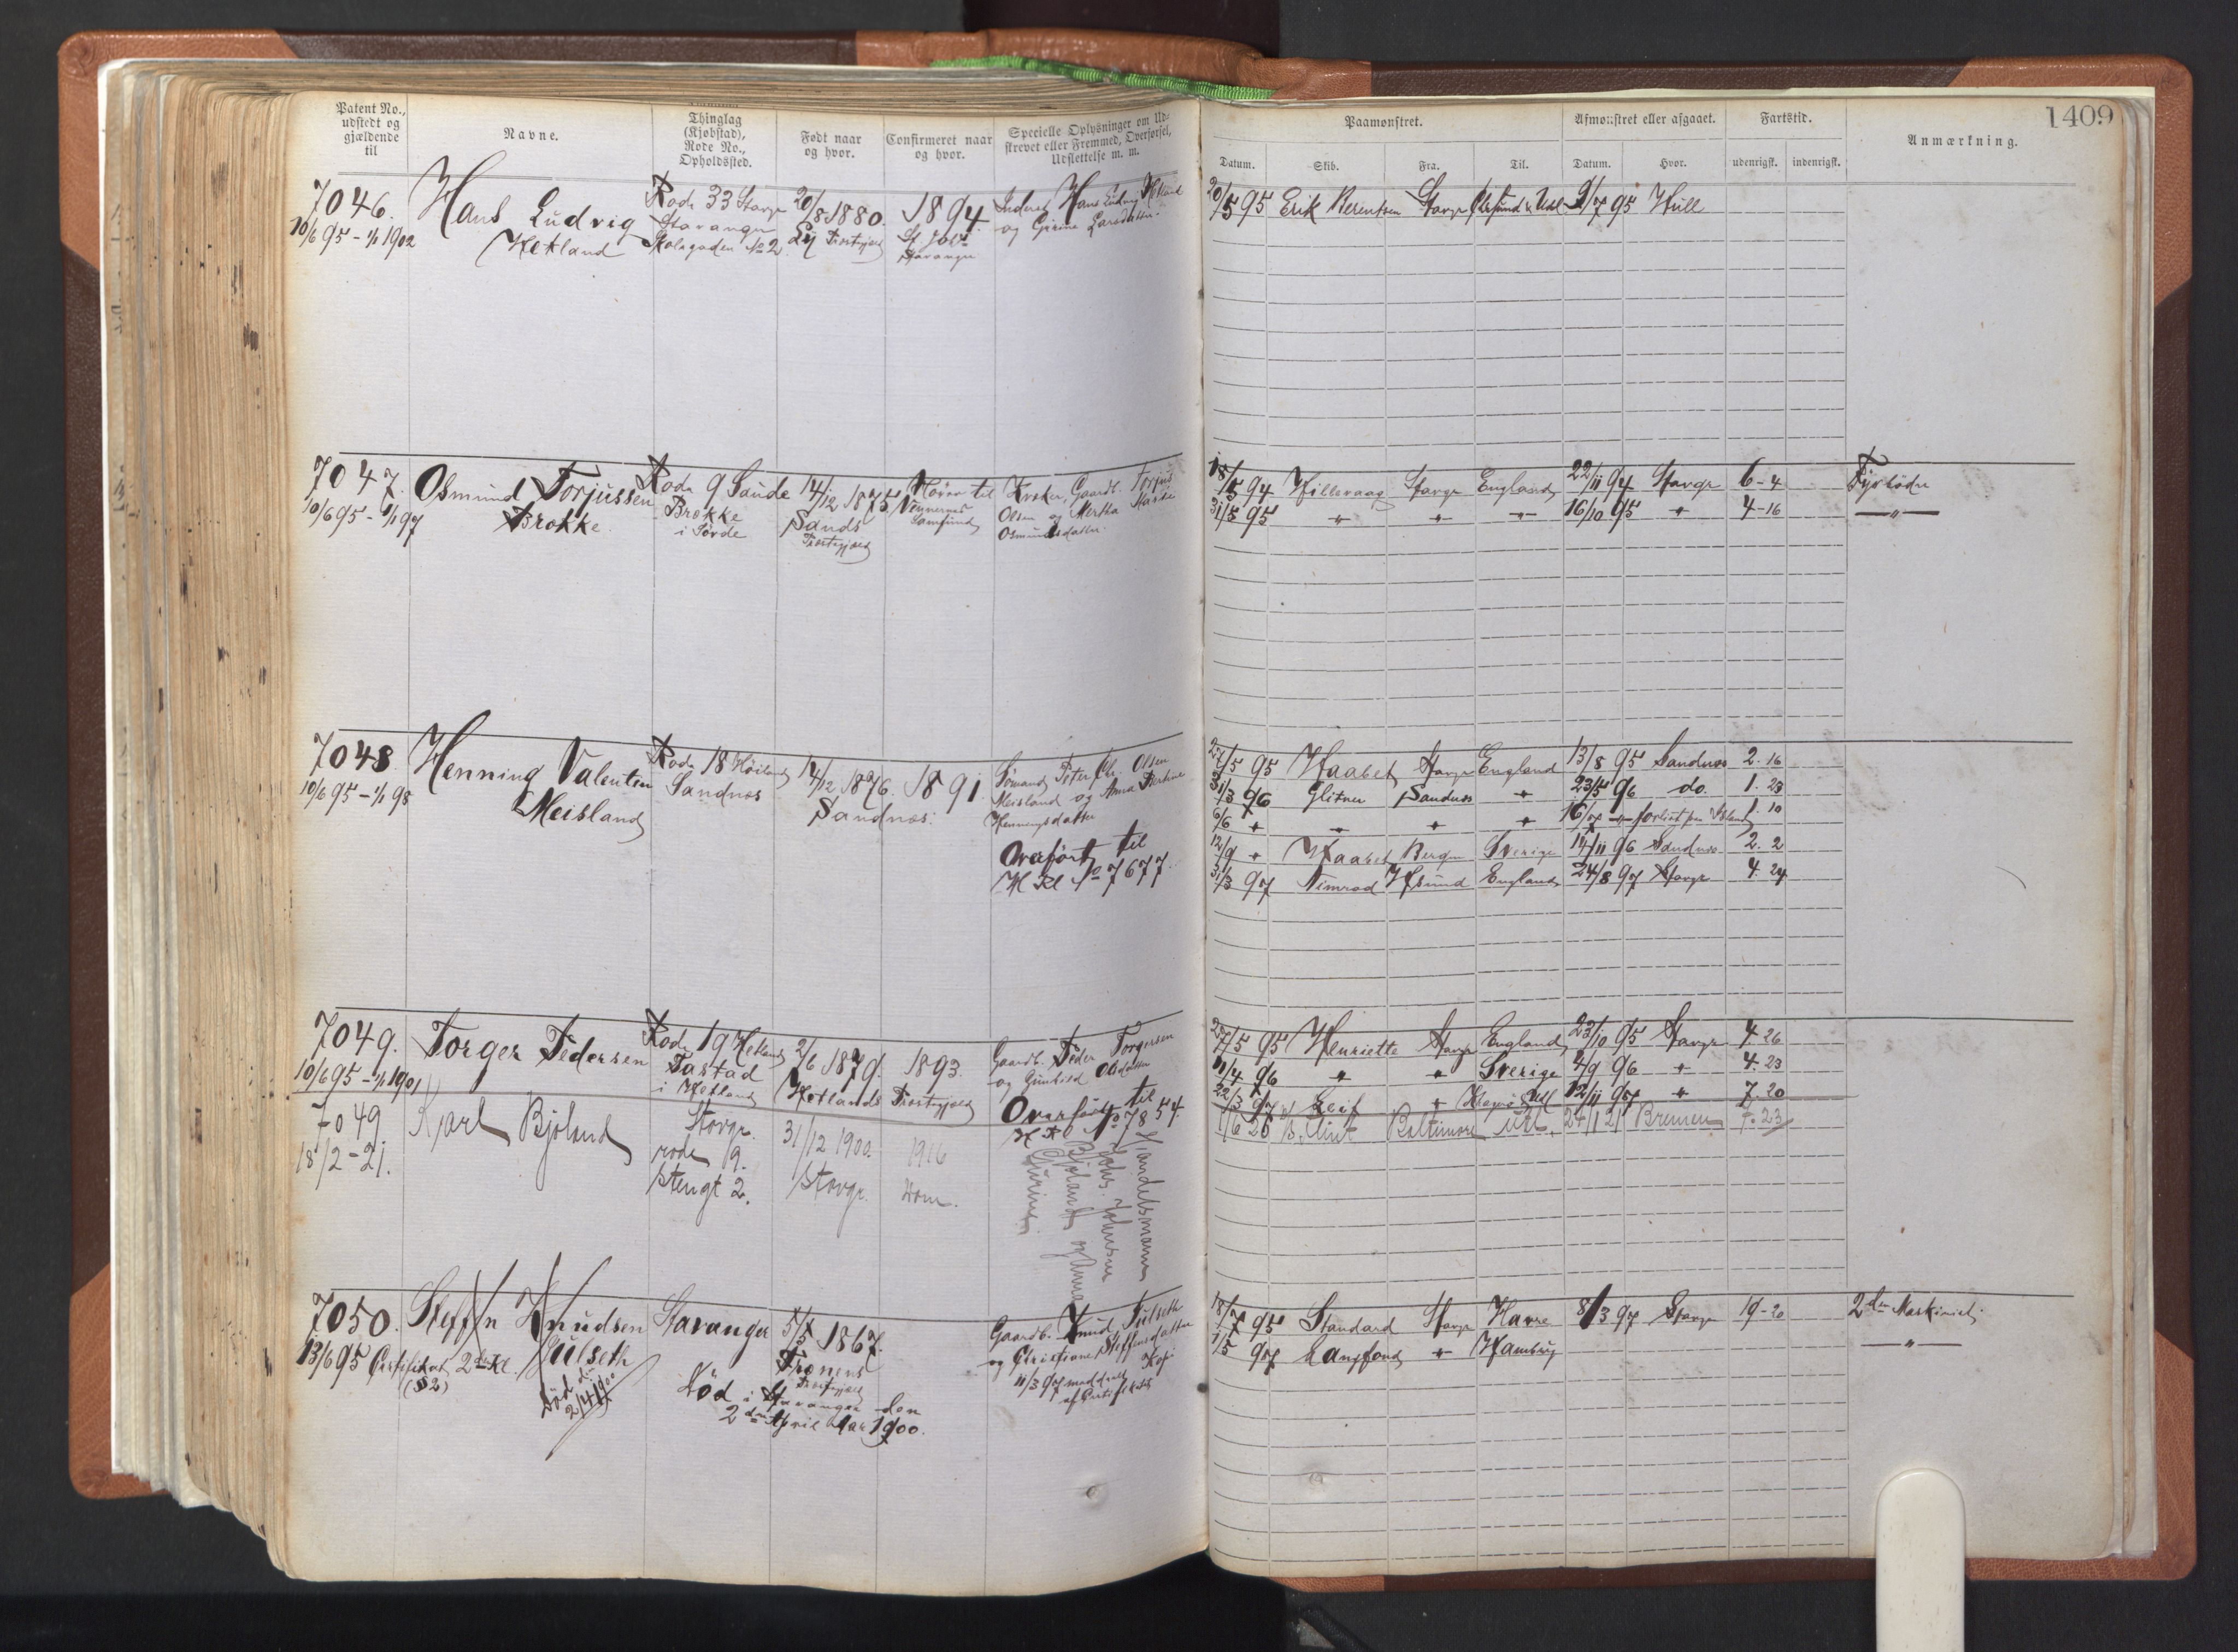 Patent No.,
udstedt og
gjældende
til
Navne.
Thinglag
(Kjøbstad),
Rode No.,
Opholdssted.
Født naar
og hvor.
Confirmeret naar
og hvor.
Specielle Oplysninger om Ud-
skrevet eller Fremmed, Overførsel,
Udslettelse m. m.
Paamønstret.
Afmønstret eller afgaaet.
Fartstid.
Anmærkning.
1409
Datum.
Skib.
Fra.
Til.
Datum.
Hvor.
udenrigsk.
indenrigsk.
7046.
10/6 95 - 1/1 1902
Hans Ludvig
Hetland
Rode 33 Stavgr
Stavanger
Skolegaden No 2
20/8 1880.
Præstegjæld
1894.
Stavanger
Hans Ludvig Hetland
og Larsdatter.
20/5 95 Erik Berentsen Stavgr 9/7 95 Hull
7047.
10/6 95 - 1/1 97
Osmund Torjussen
Brokke
Rode 9 Saude
Brokke
14/12 1875.
Sands
Præstegjæld
Hører til
Vennernes
Samfund
Gaardb. Torjus
Olsen og Mertha
Osmundsdatter.
18/5 94 Hillevaag Stavgr England 22/11 94 Stavgr 6-4 Fyrbøder
31/5 95 " " " 16/10 95 " 4-16 — " —
7048.
10/6 95 - 1/1 98
Henning Valentin
Meisland
Rode 18 Høiland
Sandnes
14/12 1876.
Sandnes.
1891
Sømand Peter Chr. Olsen
Meisland og Anna
Henningsdatter
Overført til
H Kl No 7677.
27/5 95 Haabet Stavgr England 13/8 95 Sandnes 2. 16
31/3 96 Glitner Sandnes " 23/5 96 do. 1. 23
6/6 " " " " 16/7 " forlist paa Island 1. 10
12/9 " Haabet Bergen Sverige 14/11 96 Sandnes 2. 2
31/3 97 Nimrod Hsund England 24/8 97 Stavgr 4. 24
7049.
10/6 95 - 1/1 1901
Torger Pedersen
Rode 19 Hetland
Tastad
i Hetland
2/6 1879.
Hetlands Præstegjæld
1893.
Gaardb. Peder Torgersen
og Gunhild Olsdatter
Overført til
H Kl No 7854.
27/5 95 Henriette Stavgr England 23/10 95 Stavgr 4. 26
11/4 96 " " Sverige 4/9 96 " 4. 23
22/3 97 Leif " 12/11 97 " 7. 20
7049
18/2-21.
Karl Bjøland
Stavgr.
rode 19.
Stengt 2.
31/12 1900.
Stavgr.
1916
Dom.
Handelsmann
Johs. Johnsen
Bjøland og Anna
1/6 20 Baltimore Utl. 24/1 21 Bremen 7. 23
7050.
13/6 95 Certifikat 2den Kl.
(§ 2)
Steffen Knudsen
Gulseth
Død d.
2/4 1900
Stavanger
1867.
Præstegjæld
Død i Stavanger den
2den April Aar 1900.
Gaardb. Knud Gulseth
og Christiane Steffensdatter
11/3 97 meddelt Kopi
af Certifikatet
18/7 95 Standard Stavgr Havre 8/3 97 Stavgr 19-20 2den Maskinist.
1/5 97 Langfond " Hamburg — " —